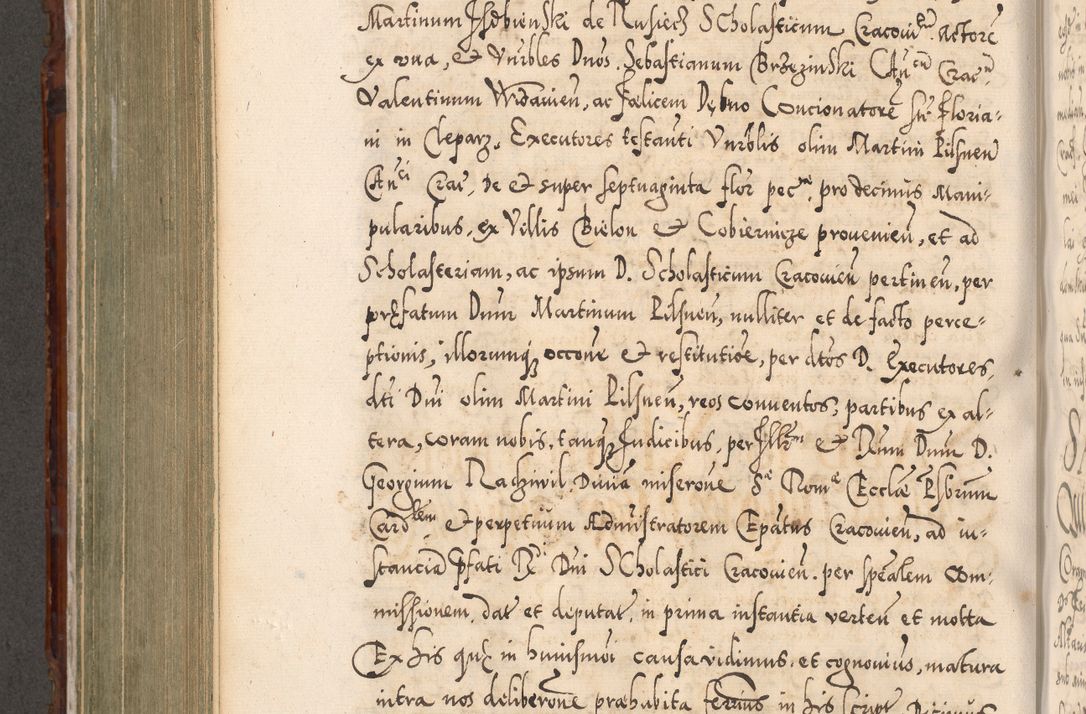 Martinum Izdbienski de Rusiecz Scholasticum Cracovien. Actore
ex una, et Vnrbles Dnos. Sebastianum Brzezinski Cancum Crac.
Valentinum Wdawien, ac Foelicem Dębno Concionatore Sti Floria-
ni in Cleparz, Executores testanti Vnrblis olim Martini Pilsnen
Canci Crac, de et super septuaginta flor pec., pro decimis Mani-
pularibus, ex Villis Bielon et Cobiernicze provenien, et ad
Scholasteriam, ac ipsum D. Scholasticum Cracovien pertinen, per
praefatum Dnum Martinum Pilsnen, nulliter et de facto perce-
ptionis, illorumq occone et restitutioe, per dtos D. Executores,
dti Dni olim Martini Pilsnen, reos conventos, partibus ex al-
tera, coram nobis, tanq Iudicibus, per Illm et Rnum Dnum D.
Georgium Radziwil Divina miserone Sae Romae Eccłae Psbrum
Cardlem et perpetuum Administratorem Epatus Cracovien, ad in-
stancia Pfati R. Dni Scholastici Cracovien. per spealem com-
missionem dat et deputat, in prima instantia verten et motta
Ex his quae in huiusmoi causa vidimus, et cognovius, matura
intra nos deliberone praehabita ferimus in his script